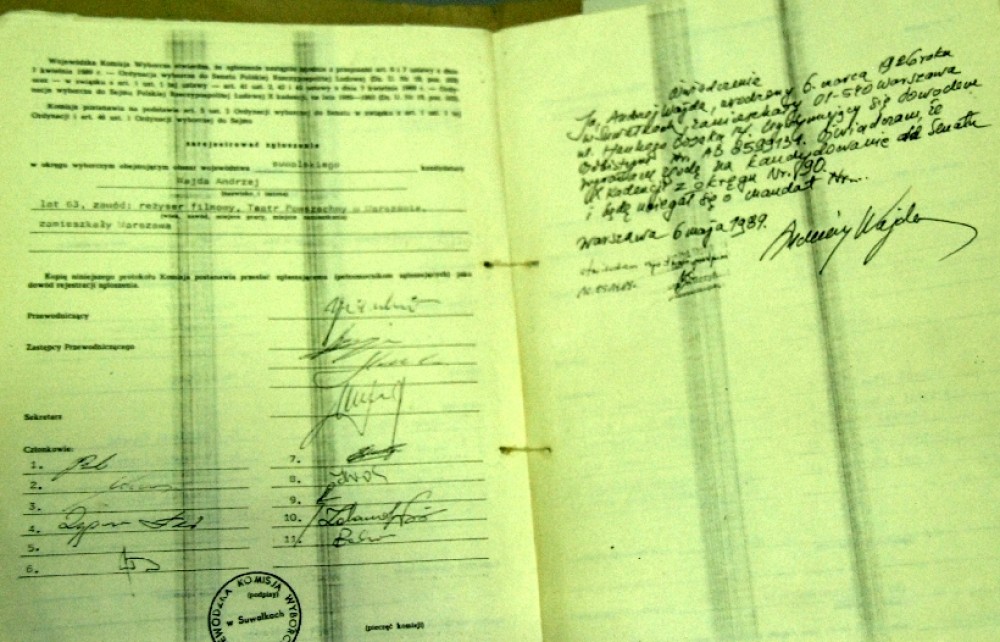 Wojewódzka Komisja Wyborcza stwierdza, że zgłoszenie zostało zgodnie z przepisami art. 6 i 7 ustawy z dnia
7 kwietnia 1989 r. — Ordynacja wyborcza do Senatu Polskiej Rzeczypospolitej Ludowej (Dz. U. Nr 19, poz.
oraz — w związku z art. 1 ust. 1 tej ustawy — art. 41 ust. 2, 42 i 43 ustawy z dnia 7 kwietnia 1989 r. — Ordy-
nacja wyborcza do Sejmu Polskiej Rzeczypospolitej Ludowej X kadencji, na lata 1989—1993 (Dz. U. Nr 19, poz.
Komisja postanawia na podstawie art. 8 ust. 2 Ordynacji wyborczej do Senatu w związku z art. 1 ust. 1 tej
Ordynacji i art. 46 ust. 1 Ordynacji wyborczej do Sejmu
zarejestrować zgłoszenie
w okręgu wyborczym obejmującym obszar województwa suwalskiego kandydatury
Wajda Andrzej
(nazwisko i imiona)
lat 63, zawód: reżyser filmowy, Teatr Powszechny w Warszawie,
(wiek, zawód, miejsce pracy, miejsce
zamieszkały Warszawa
Kopię niniejszego protokołu Komisja postanawia przesłać zgłaszającemu (pełnomocnikom zgłaszających) jako
dowód rejestracji zgłoszenia.
Przewodniczący
Zastępcy Przewodniczącego
Sekretarz
Członkowie:
1.
2.
3.
4.
5.
6.
7.
8.
9.
10.
11.
WOJEWÓDZKA KOMISJA WYBORCZA
(podpisy)
w Suwałkach
(pieczęć komisji)
oświadczenie
Ja, Andrzej Wajda, urodzony 6. marca 1926 roku
w Suwałkach, zamieszkały 01-540 Warszawa
ul. Haukego Bosaka 14. legitymujący się dowodem
osobistym Nr. AB 8599134. Oświadczam, że
wyrażam zgodę na kandydowanie do Senatu
kadencji z okręgu Nr. 90.
i będę ubiegał się o mandat Nr...
Warszawa 6 maja 1989.
Andrzej Wajda